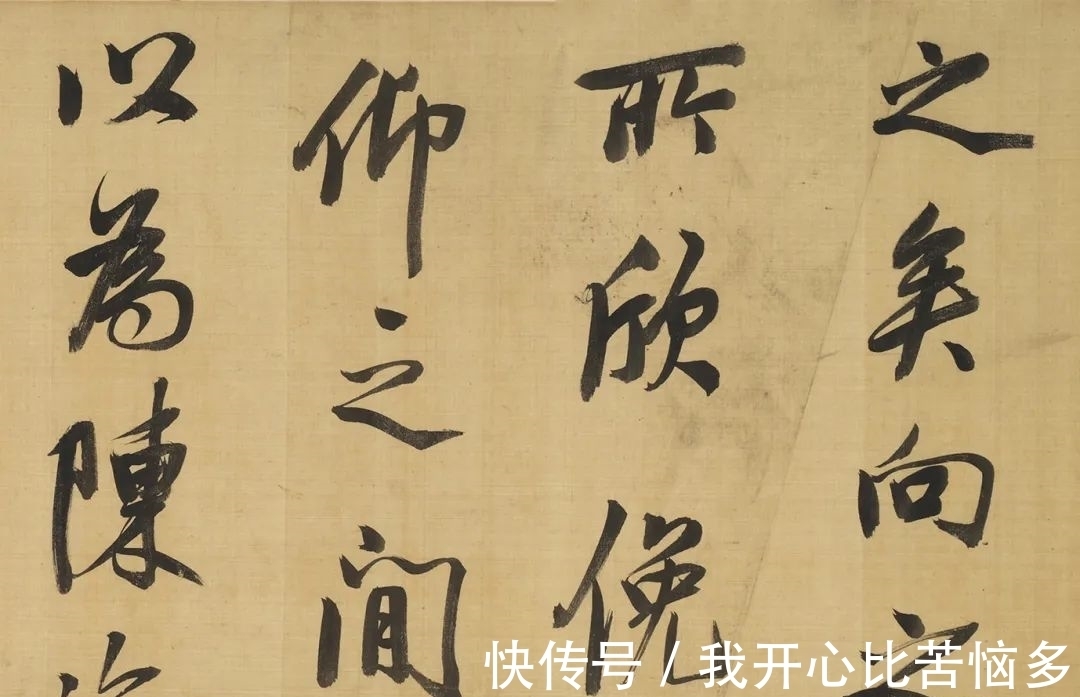 之矣向之
所欣俛
仰之間
以為陳
快传号 / 我开心比苦恼多